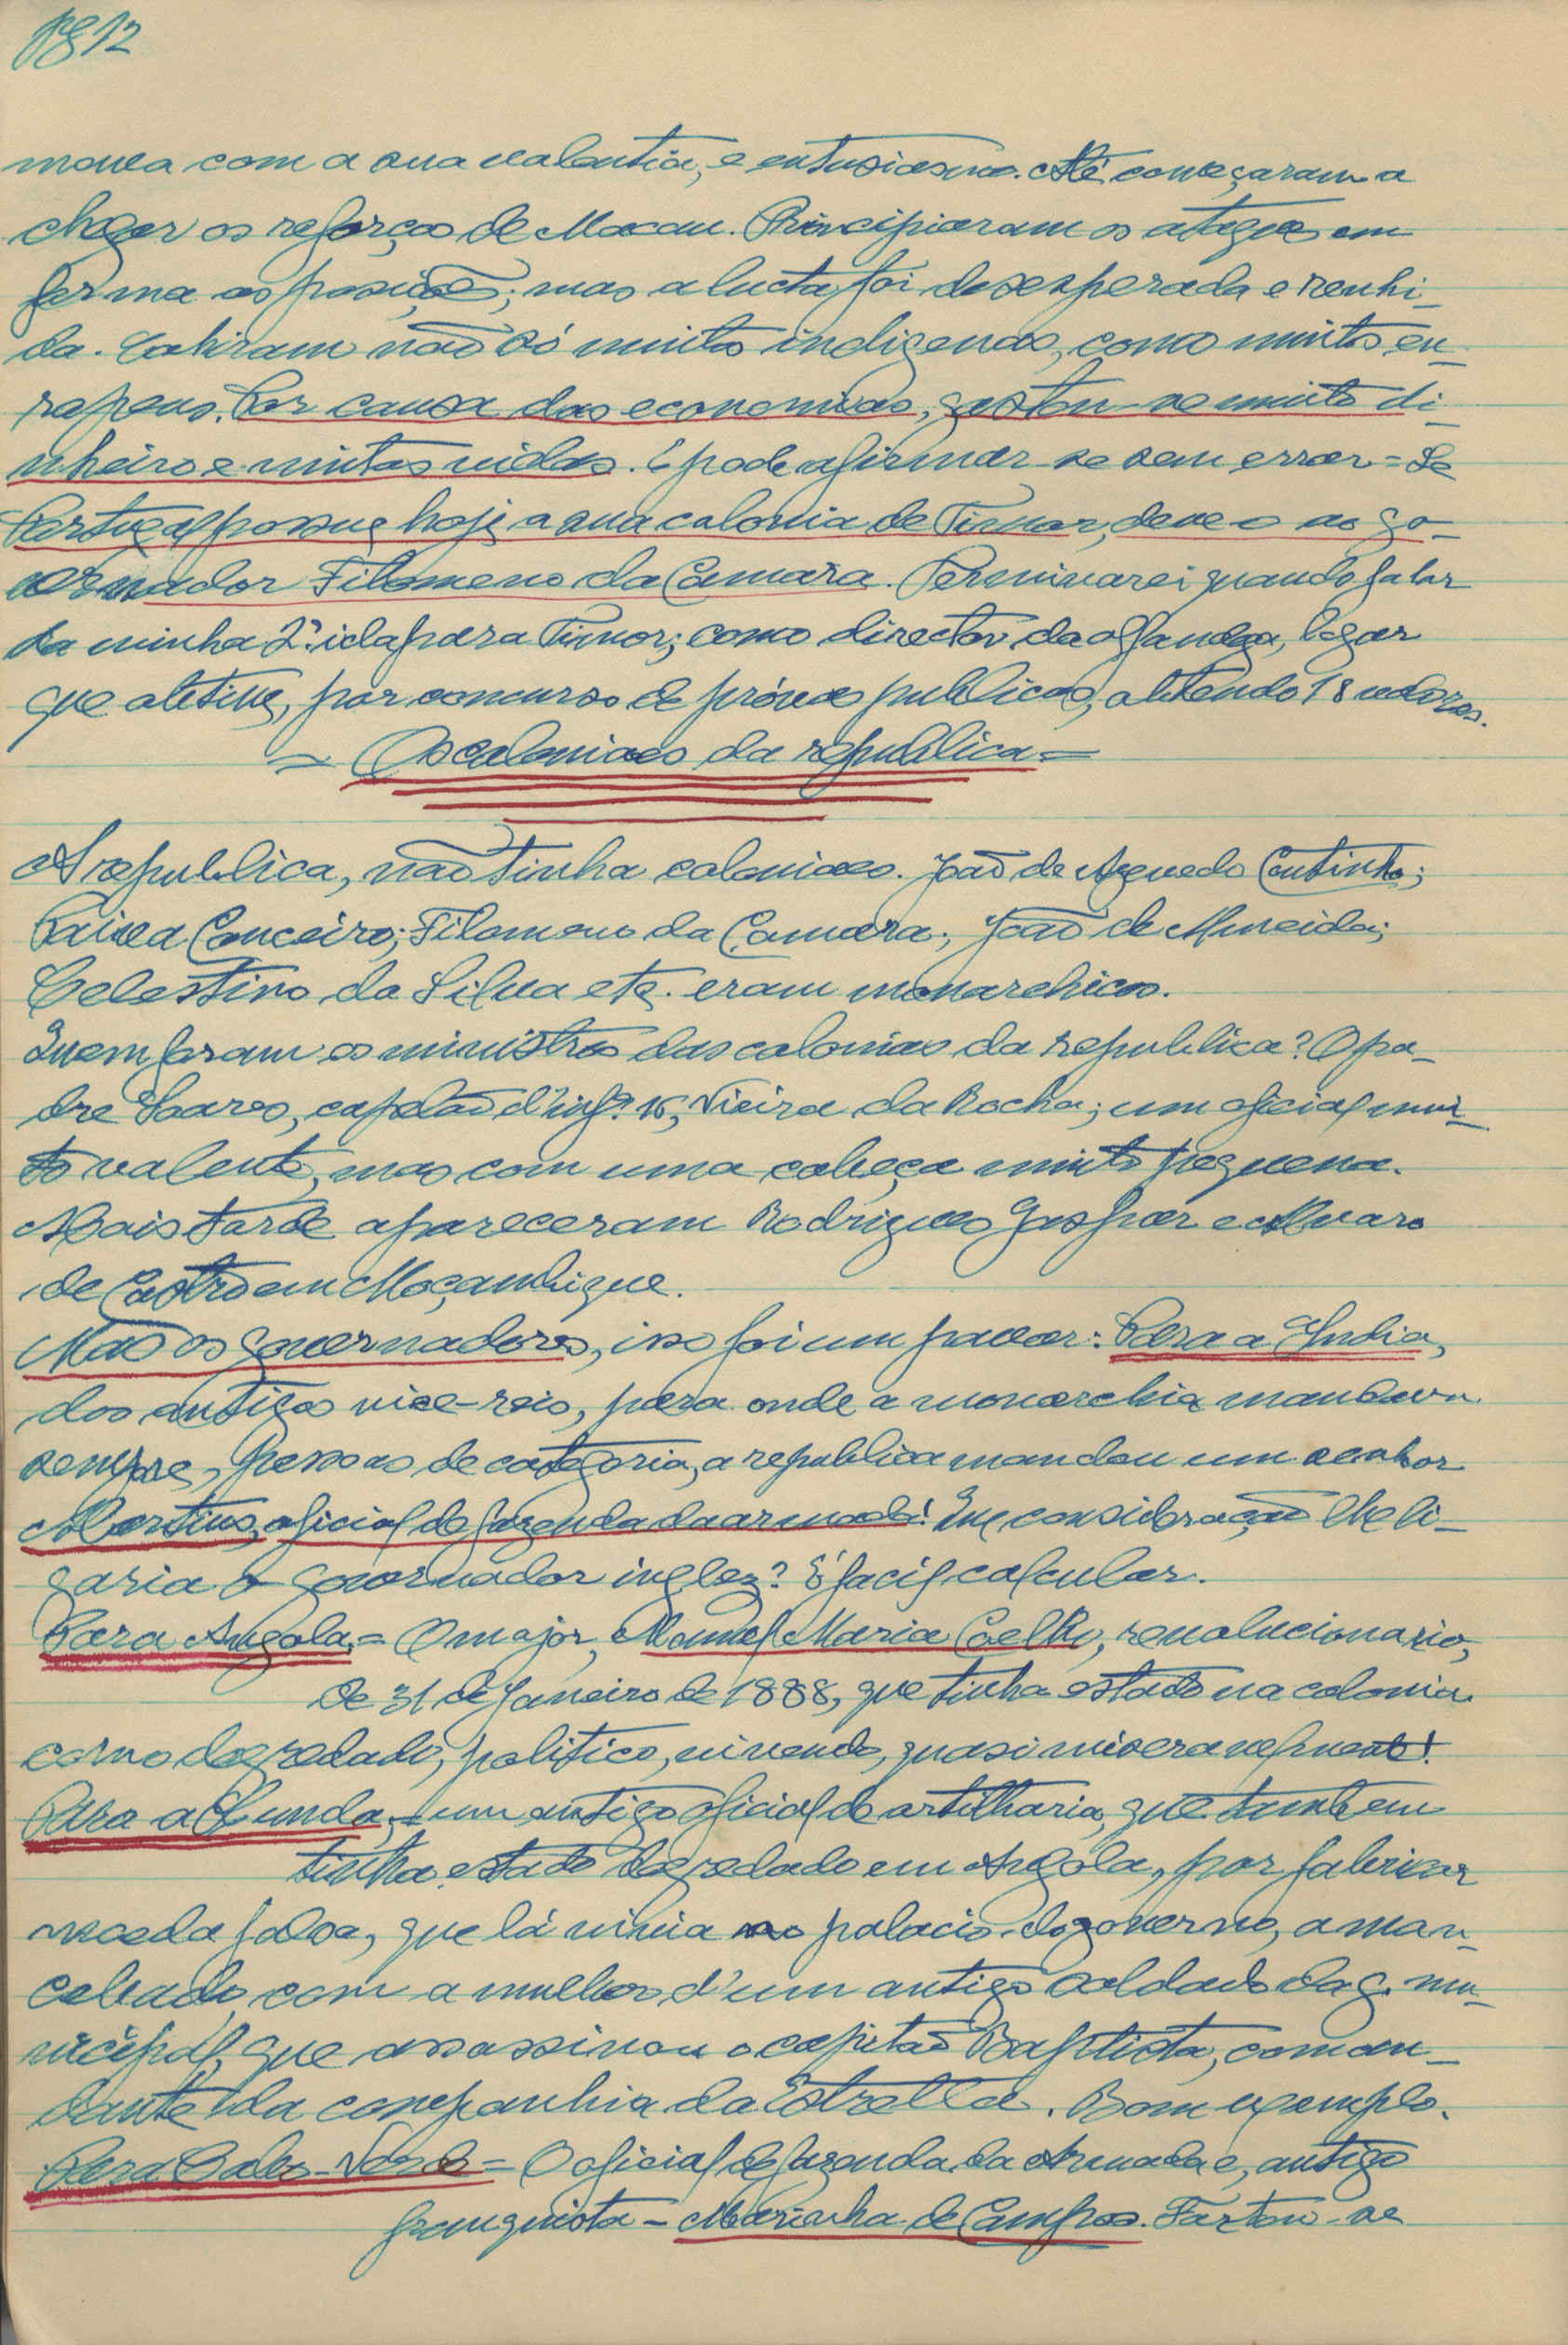 pg 12
moвеu com a sua valentia, e enthusiasmo. Até começaram a
chegar os reforços de Macau. Principiaram os ataques em
forma as posições; mas a lucta foi desesperada e renhi-
da. Cahiram não só muitos indigenas, como muitos eu-
ropeus. Por causa das economias, gastou-se muito di-
nheiro e muitas vidas. E pode afirmar-se sem errar = Se
Portugal possue hoje a sua colonia de Timor, deve-o ao go-
vernador Filomeno da Camara. Terminarei quando falar
da minha 2ª ida para Timor; como director da alfandega, logar
que obtive, por concurso de próvas publicas, obtendo 18 valores.
= Os coloniaes da republica =
A republica, não tinha coloniaes. João de Azevedo Coutinho;
Paiva Conceiro; Filomeno da Camara; João de Almeida;
Celestino da Silva etc. eram monarchicos.
Quem foram os ministros das colonias da republica? O pa-
dre Soares, capelão d'infª 16, Vieira da Rocha; um oficial mui-
to valente, mas com uma cabeça muito pequena.
Mais tarde apareceram Rodrigues Gaspar e Alvaro
de Castro em Moçambique.
Mas os governadores, isso foi um pavor: Para a India,
dos antigos vice-reis, para onde a monarchia mandava
sempre, pessoas de categoria, a republica mandou um senhor
Martins, oficial de fazenda da armada! Que consideração lhe li-
garia o governador inglez? É facil calcular.
Para Angola, = O major, Manuel Maria Coelho, revolucionario,
de 31 de Janeiro de 1888, que tinha estado na colonia
como degredado, politico, vivendo, quasi miseravelmente!
Para a Lunda, - um antigo oficial de artilharia, que tambem
tinha estado degredado em Angola, por fabricar
moeda falsa, que lá vivia no palacio do governo, aman-
cebado com a mulher d'um antigo soldado da g. mu-
nicipal, que assassinou o capitão Baptista, coman-
dante da companhia da Estrella. Bom exemplo.
Para Cabo-Verde = O oficial de fazenda da Armada e, antigo
franquista - Marinha de Campos. Fartou-se